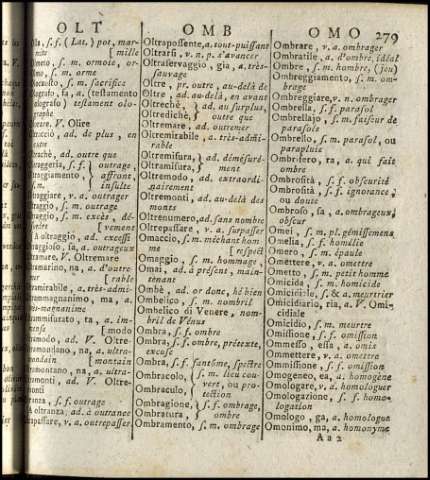 OLT
OMB
OMO
279
s. f. (Lat.) pot, mar-
[mille
s. m. ormoie, or-
s. m. orme
s. m. sacrifice
fa, a (testamento
testament olo-
graphe
V. Olire
ad. de plus, en
ad. outre que
s. f.
affront,
s. m.
insulte
v. a. outrager
s. m. outrage
s. m. excès, dé-
[vement
A oltraggio, ad. excessi
fa, a. outrageux
V. Oltremare
na, a. d'outre
[rable
a. très-admi-
ma, a.
ta, a. im-
[modo
ad. V. Oltre-
na, a. ultra-
[montain
na, a. ultra-
ad. V. Oltre-
s. f. outrage
A oltranza, ad. à outrance
v. a. outrepasser
Oltrapossente, a. tout-puissant
Oltrarsi, v. n. p. s'avancer
Oltraservaggio, gia, a. très-
sauvage
Oltre, pr. outre, au-delà de
Oltre, ad. au-delà, en avant
Oltrechè, ad. au surplus,
Oltredichè, outre que
Oltremare, ad. outremer
Oltremirabile, a. très-admi-
rable
Oltremisura, ad. démesuré-
Oltramisura, ment
Oltremodo, ad. extraordi-
nairement
Oltremonti, ad. au-delà des
monts
Oltrenumero, ad. sans nombre
Oltrepassare, v. a. surpasser
Omaccio, s. m. méchant hom-
me [respect
Omaggio, s. m. hommage,
Omai, ad. à présent, main-
tenant
Ombè, ad. or donc, hé bien
Ombelico, s. m. nombril
Ombelico di Venere, nom-
bril de Vénus
Ombra, s. f. ombre
Ombra, s. f. ombre, prétexte,
excuse
Ombra, s. f. fantôme, spectre
Ombracolo, s. m. lieu cou-
vert, ou pro-
Ombraculo, tection
Ombragione, s. f. ombrage,
Ombratura, ombre
Ombramento, s. m. ombrage
Ombrare, v. a. ombrager
Ombratile, a. d'ombre, idéal
Ombre, s. m. hombre, (jeu)
Ombreggiamento, s. m. om-
brage
Ombreggiare, v. n. ombrager
Ombrella, s. f. parasol
Ombrellajo, s. m. faiseur de
parasols
Ombrello, s. m. parasol, ou
parapluie
Ombrifero, ra, a. qui fait
ombre
Ombrosità, s. f. obscurité
Ombrosità, s. f. ignorance,
ou doute
Ombroso, sa, a. ombrageux,
obscur
Omei, s. m. pl. gémissemens
Omelia, s. f. homélie
Omero, s. m. épaule
Omettere, v. a. omettre
Ometto, s. m. petit homme
Omicida, s. m. homicide
Omicidiale, s. & a. meurtrier
Omicidiario, ria, a. V. Omi-
cidiale
Omicidio, s. m. meurtre
Omissione, s. f. omission
Ommesso, essa, a. omis
Ommettere, v. a. omettre
Ommissione, s. f. omission
Omogeneo, ea, a. homogène
Omologare, v. a. homologuer
Omologazione, s. f. homo-
logation
Omologo, ga, a. homologue
Omonimo, ma, a. homonyme
Aa2